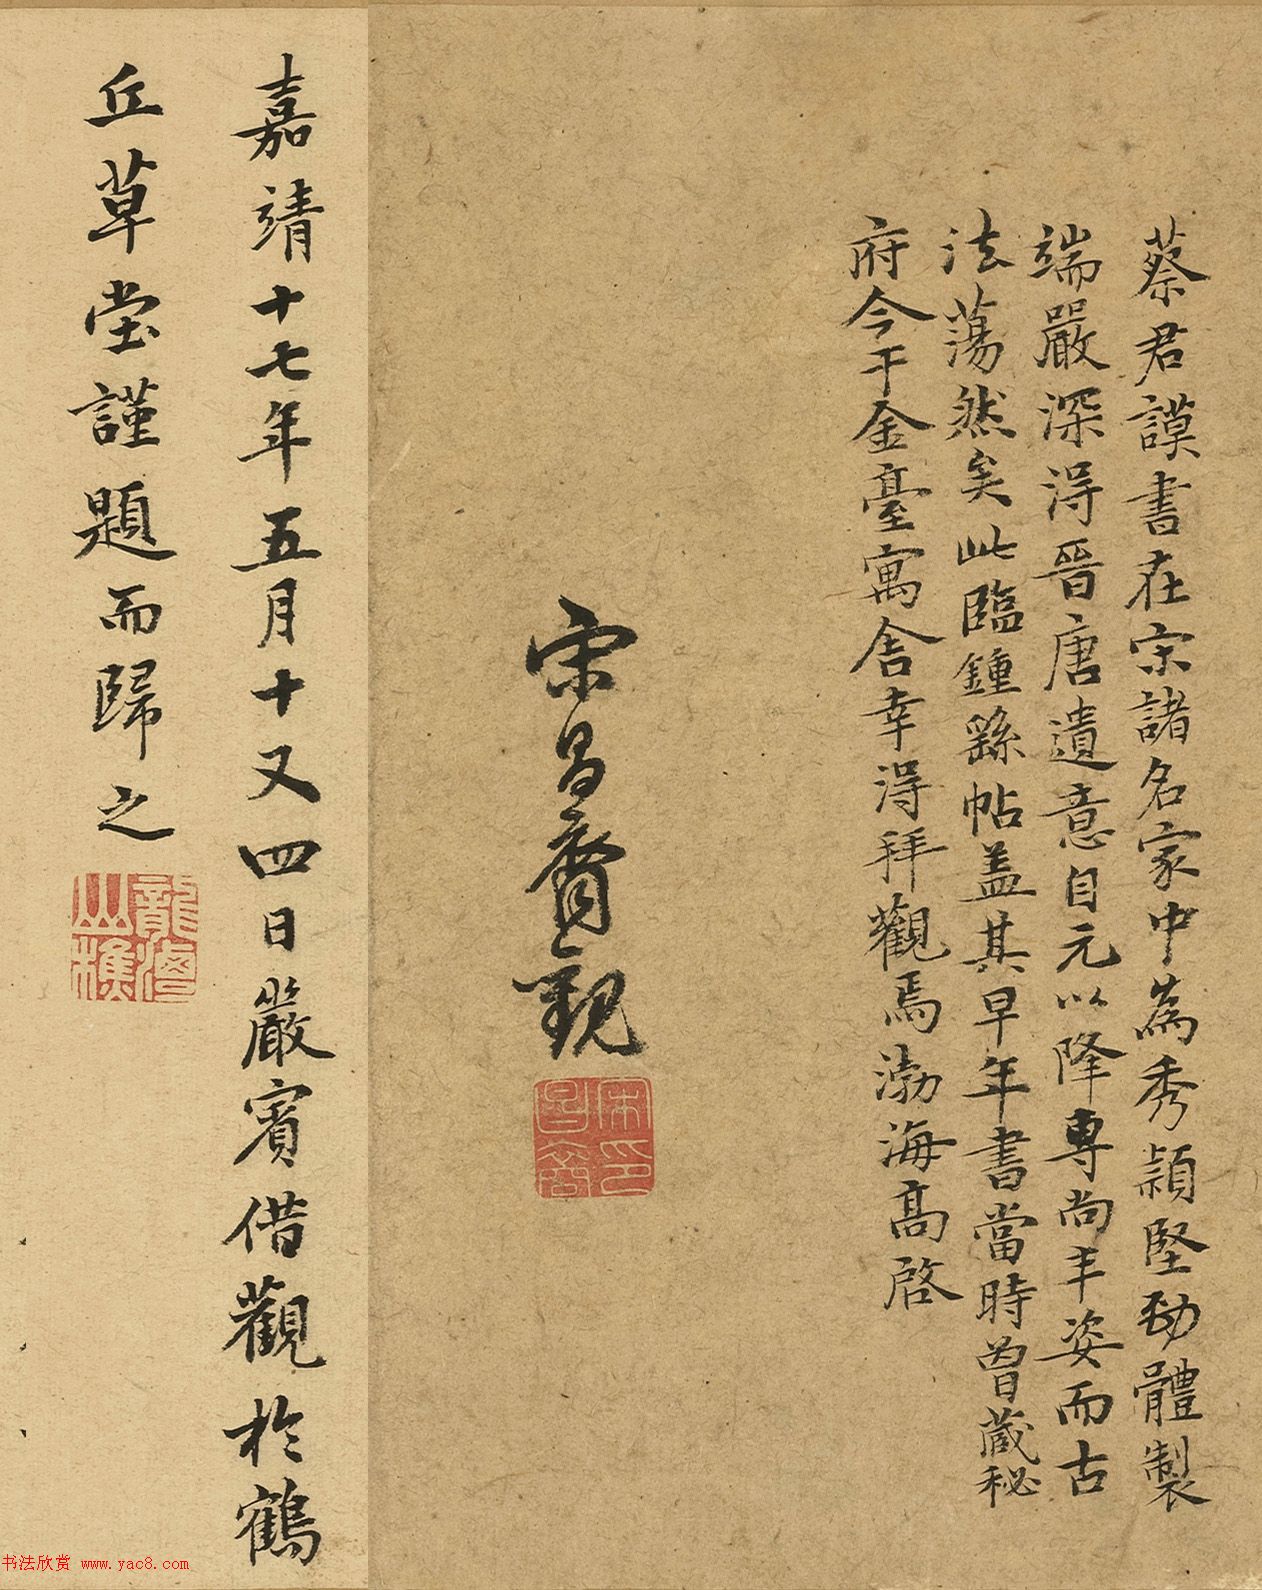 蔡君謨書在宋諸名家中為秀穎堅勁體製
端嚴深得晉唐遺意自元以降專尚丰姿而古
法蕩然矣此臨鍾繇帖盖其早年書當時曾蔵秘
府今于金臺寓舍幸得拜觀焉渤海高啓
宋昌裔觀
宋昌裔印
嘉靖十七年五月十又四日嚴賓借觀於鶴
丘草堂謹題而歸之
龍灣山樵
书法欣赏 www.yac8.com